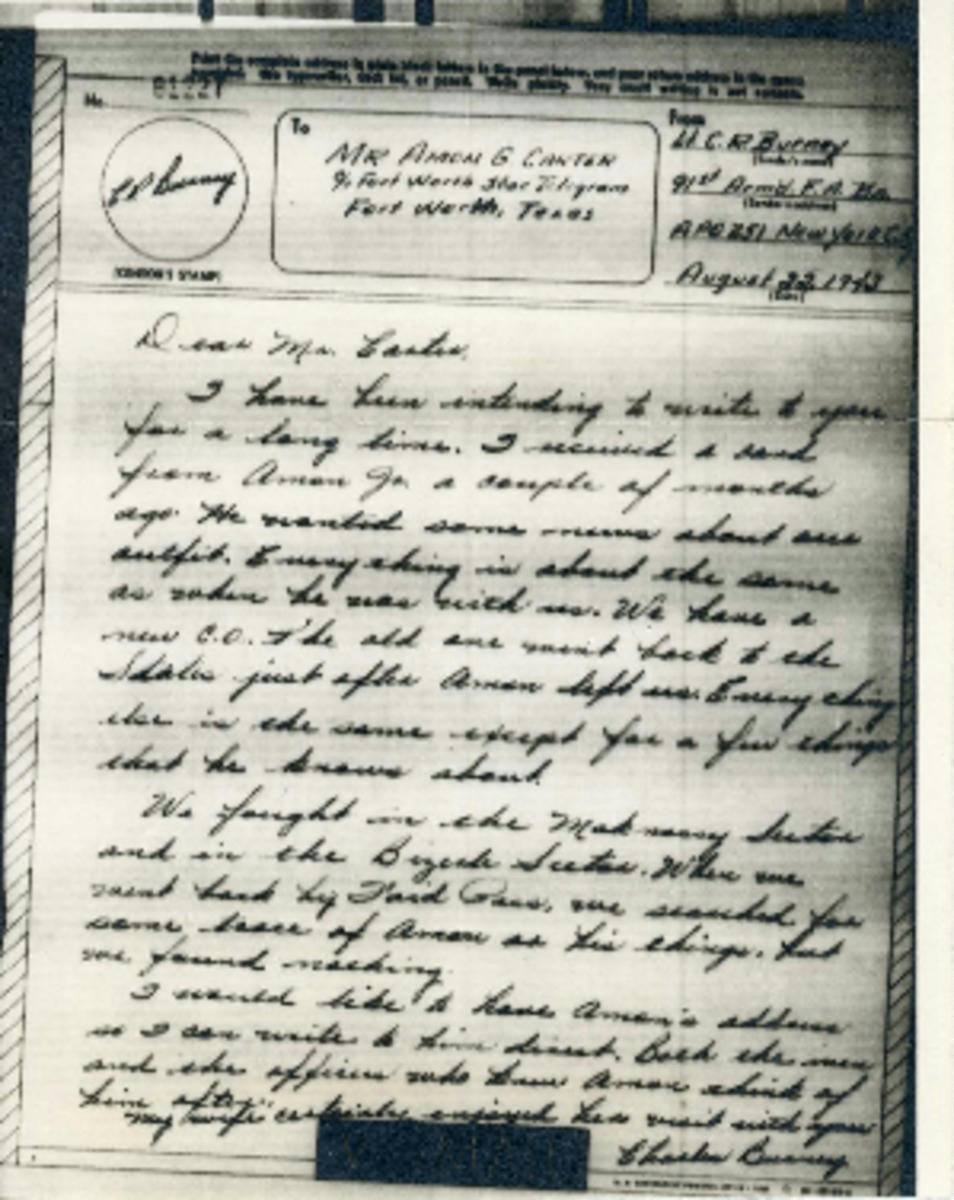 Print the complete address in plain block letters in the panel below, and your return address in the space
provided. Use typewriter, dark ink, or pencil. Write plainly. Very small writing is not suitable.
No.
To
From
MR AMON G CARTER
% Fort Worth Star Telegram
Fort Worth, Texas
Lt C.R Burney
(Sender's name)
91st Arm'd. F.A. Bn.
(Sender's address)
APO 251 New York City
August 22 1943
(Date)
CR Burney
(CENSOR'S STAMP)
Dear Mr. Carter,
I have been intending to write to you
for a long time. I received a card
from Amon Jr. a couple of months
ago. He wanted some news about our
outfit. Every thing is about the same
as when he was with us. We have a
new C.O. The old one went back to the
States just after Amon left us. Every thing
else is the same except for a few things
that he knows about.
We fought in the Maknassy Sector
and in the Bizerte Sector. When we
went back by Faid Pass, we searched for
some trace of Amon or his things, but
we found nothing.
I would like to have Amon's address
so I can write to him direct. Both the men
and the officers who knew Amon think of
him often.
My wife certainly enjoyed her visit with you
Charles Burney